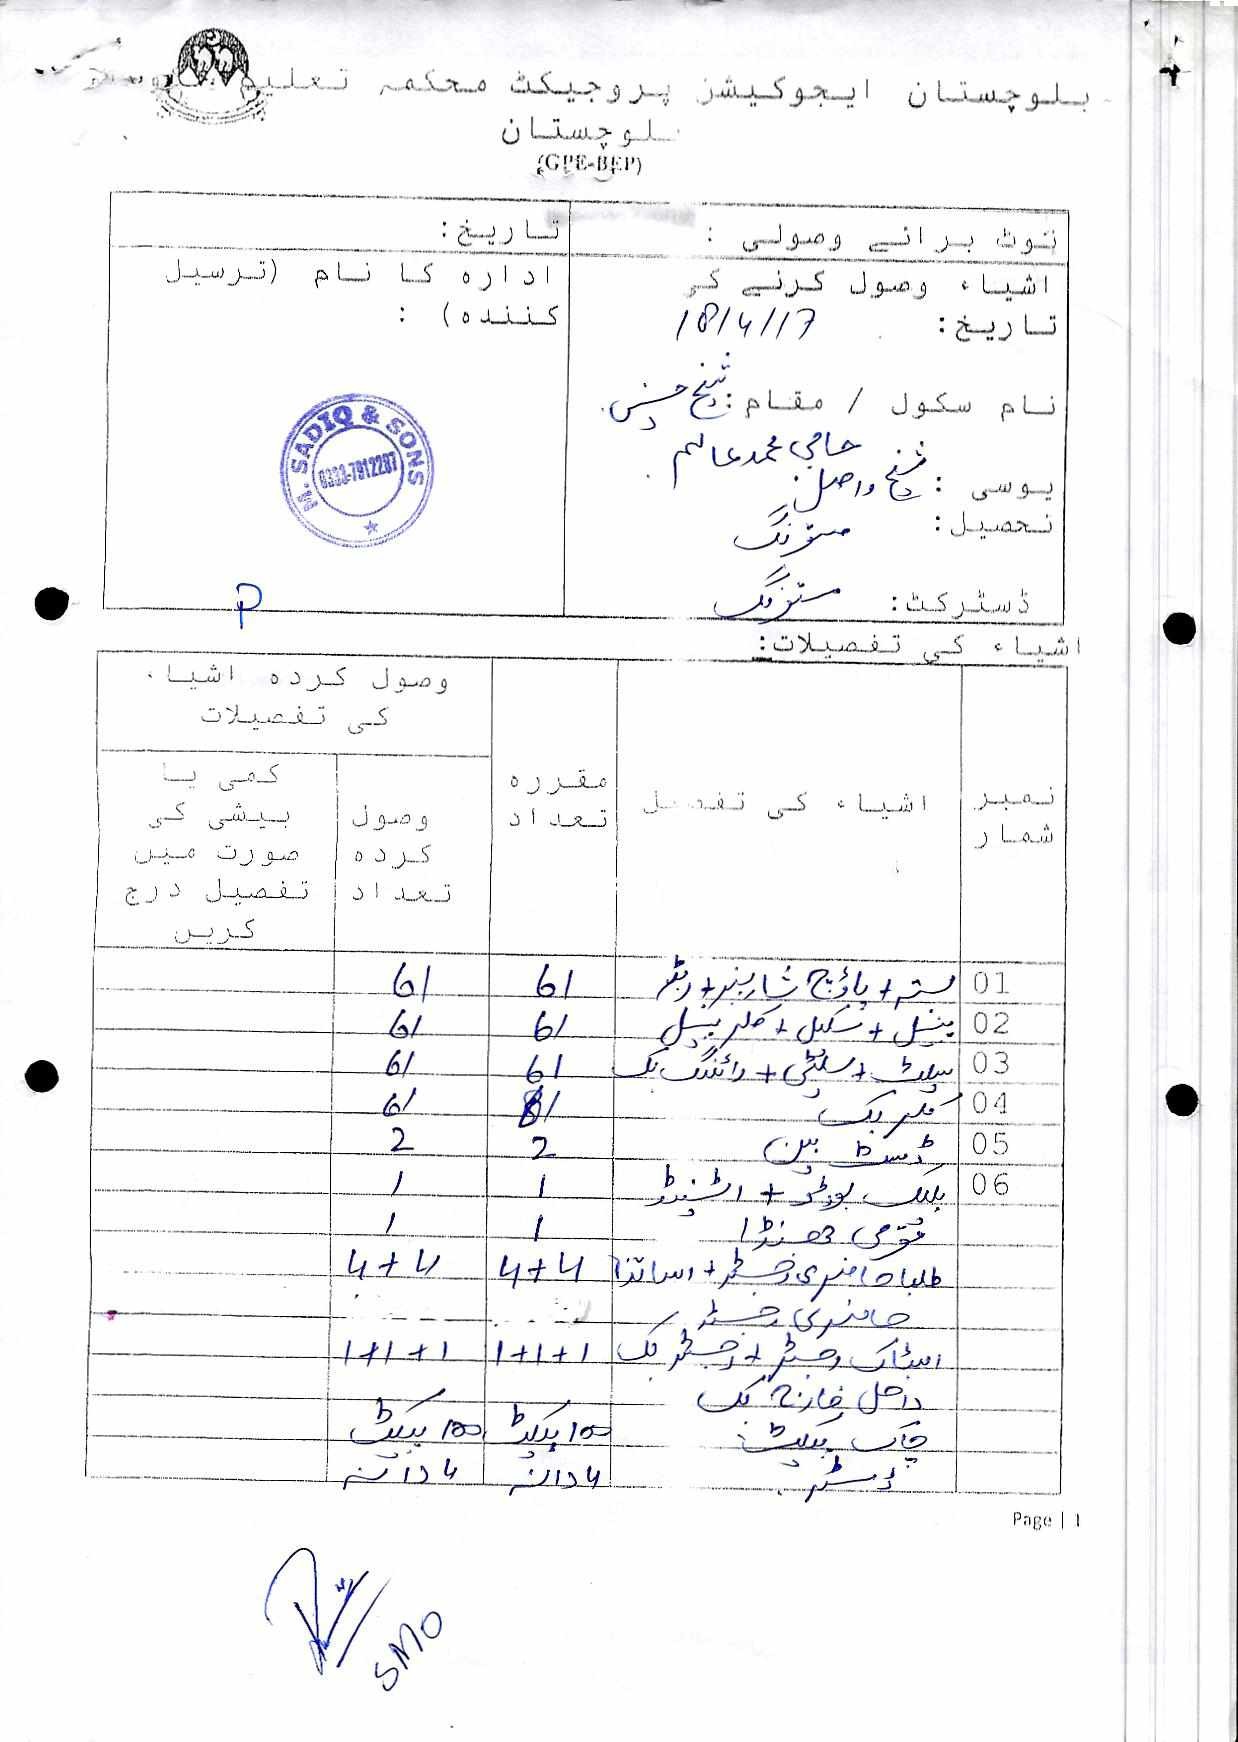 بلوچستان ایجوکیشن پروجیکٹ محکمہ تعلیم
بلوچستان
(GPE-BEP)
نوٹ برائے وصولی :
تاریخ:
اشیاء وصول کرنے کی
تاریخ: 18/4/17
ادارہ کا نام (ترسیل
کنندہ) :
نام سکول / مقام:
حاجی محمد عالم
یوسی : شیخ واصل
تحصیل: مستونگ
ڈسٹرکٹ: مستونگ
M. SADIQ & SONS
0333-7912287
P
اشیاء کی تفصیلات:
نمبر شمار
اشیاء کی تفصیل
مقررہ تعداد
وصول کردہ اشیاء کی تفصیلات
وصول کردہ تعداد
کمی یا بیشی کی صورت میں تفصیل درج کریں
01 بستہ + پاؤچ شارپنر + ربڑ 61 61
02 پنسل + سکیل + کلر پنسل 61 61
03 سلیٹ + سلیٹی + رائٹنگ بک 61 61
04 کلر بک 61
05 ڈسٹ بین 2 2
06 بلیک بورڈ + اسٹینڈ 1 1
قومی جھنڈا 1 1
طلبا حاضری رجسٹر + اساتذا 4+4 4+4
حاضری رجسٹر
اسٹاک رجسٹر + رجسٹر بک 1+1+1 1+1+1
داخل خارج بک
چاک پیکٹ 100 پیکٹ 100 پیکٹ
ڈسٹر 4 دانہ 4 دانہ
Page | 1
SMO